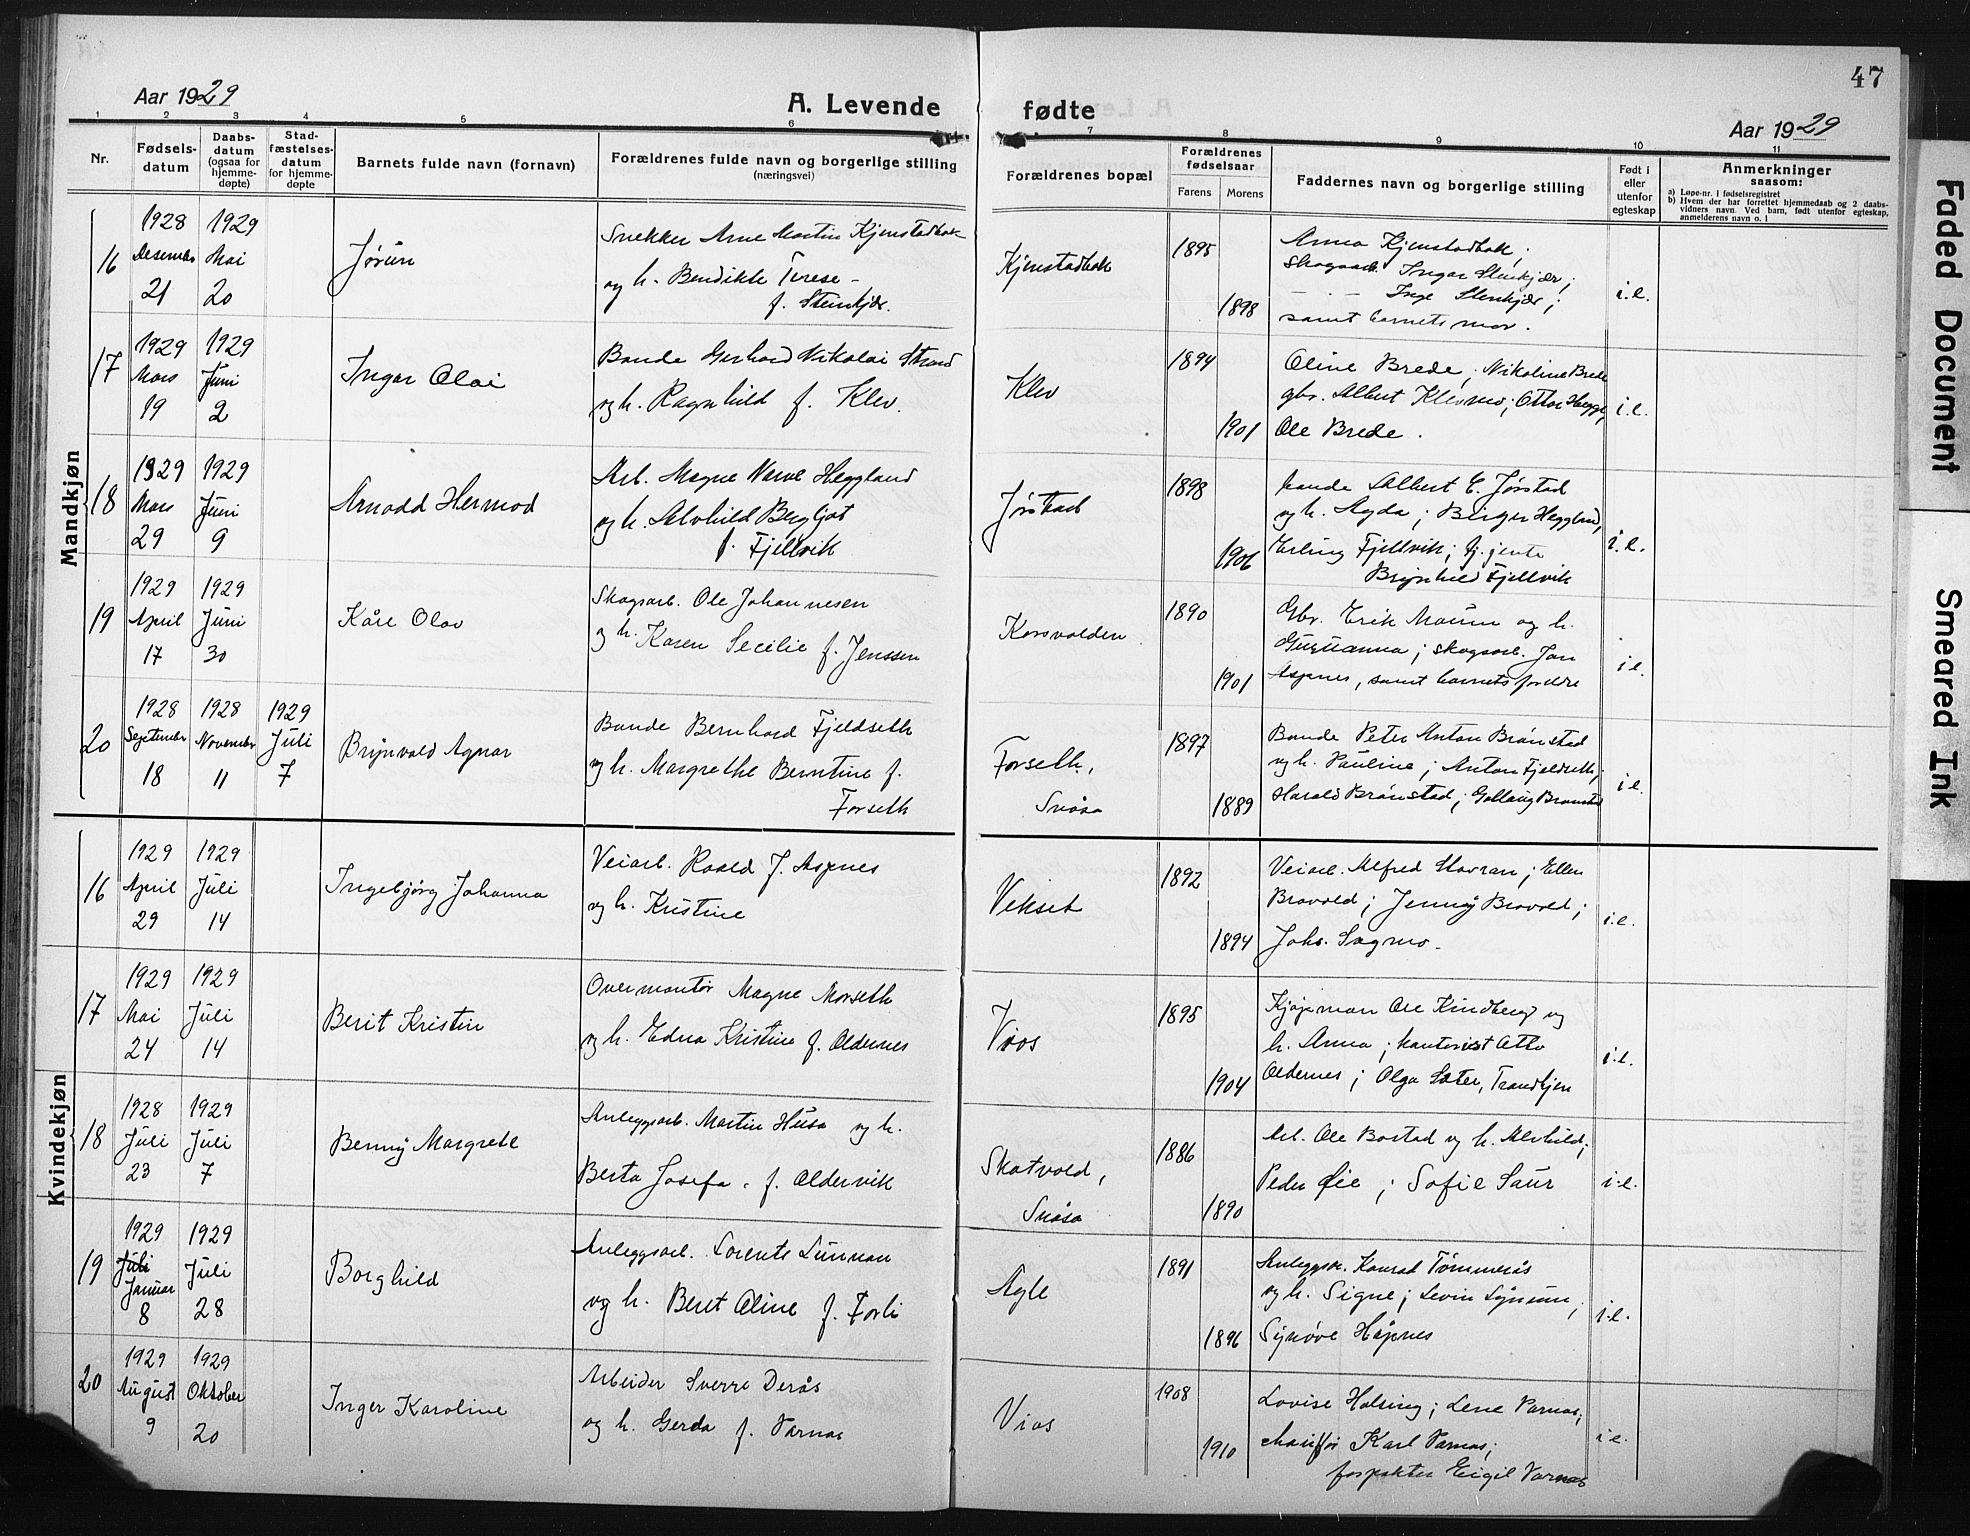 47
Aar 1929
A. Levende fødte
Aar 1929
1 2 3 4 5 6 7 8 9 10 11
Nr.
Fødsels-
datum
Daabs-
datum
(ogsaa for
hjemme-
døpte)
Stad-
fæstelses-
datum
for hjemme-
døpte
Barnets fulde navn (fornavn)
Forældrenes fulde navn og borgerlige stilling
(næringsvei)
Forældrenes bopæl
Forældrenes
fødselsaar
Farens Morens
Faddernes navn og borgerlige stilling
Født i
eller
utenfor
egteskap
Anmerkninger
saasom:
a) Løpe-nr. i fødselsregistret
b) Hvem der har forrettet hjemmedaab og 2 daabs-
vidners navn. Ved barn, født utenfor egteskap,
anmelderens navn o. l
Mandkjøn
16
1928
Desember
21
1929
Mai
20
Jørun
Snekker Arne Martin Kjenstadbak
og h. Bendikte Terese
f. Steinkjær.
Kjenstadbak
1895
1898
Anna Kjenstadbak;
Skogsarb. Ingar Stenkjær;
— — Inge Stenkjær;
samt barnets mor.
i.e.
17
1929
Mars
19
1929
Juni
2
Ingar Olai
Bonde Gerhard Nikolai Strand
og h. Ragnhild f. Klev.
Klev
1894
1901
Oline Brede; Nikoline Brede
gbr. Albert Klevmo; Ottar Hegge;
Ole Brede.
i.e.
18
1929
Mars
29
1929
Juni
9
Arnodd Hermod
Arb. Magne Heggland
og h. Alvhild Bergljot
f. Fjellvik
Jørstad
1898
1906
bonde Albert E. Jørstad
og h. Agda; Birger Heggland,
Erling Fjellvik; tj.jente
Brynhild Fjellvik
i.e.
19
1929
April
17
1929
Juni
30
Kåre Olav
Skogsarb. Ole Johannesen
og h. Karen Secilie f. Jenssen
Korsvolden
1890
1901
Gbr. Erik Maum og h.
Gurianna; skogsarb. Jon
Aspnes, samt barnets foreldre
i.e.
20
1928
September
18
1928
November
11
1929
Juli
7
Brynvald Agnar
Bonde Bernhard Fjeldseth
og h. Margrethe Berntine f.
Forseth
Forseth,
Snåsa
1897
1889
Bonde Peter Anton Brønstad
og h. Pauline; Anton Fjeldseth;
Harald Brønstad; Gollaug Brønstad
i.e.
Kvindekjøn
16
1929
April
29
1929
Juli
14
Ingebjørg Johanna
Veiarb. Roald J. Aspnes
og h. Kristine
Vekset
1892
1894
Veiarb. Alfred Stavran; Ellen
Bravold; Jenny Bravold;
Johs. Sagmo.
i.e.
17
1929
Mai
24
1929
Juli
14
Berit Kristin
Overmontør Magne Morseth
og h. Edna Kristine f. Oldernes
Vios
1895
1904
Kjøpman Ole Kindberg og
h. Anna; kontorist Otto
Oldernes; Olga Sæter, Trondhjem
i.e.
18
1928
Juli
23
1929
Juli
7
Benny Margrete
Anleggsarb. Martin Husa og h.
Berta Josefa. f. Oldervik
Skatvold,
Snåsa
1886
1890
Arb. Ole Bostad og h. Alvhild;
Peder Øie; Sofie Saur
i.e.
19
1929
Juli
Januar
8
1929
Juli
28
Borghild
Anleggsarb. Lorents Sunnan
og h. Beret Oline f. Forli
Agle
1891
1896
Anleggsa. Konrad Tømmerås
og h. Signe; Levin Synum;
Synøve Håpnes
i.e.
20
1929
August
9
1929
Oktober
20
Inger Karoline
Arbeider Sverre Derås
og h. Gerda f. Varnæs
Vios
1908
1910
Lovise Holsing; Lene Varnæs;
chauffør Karl Varnæs;
forpakter Eigil Varnæs
i.e.
Faded Document
Smeared Ink